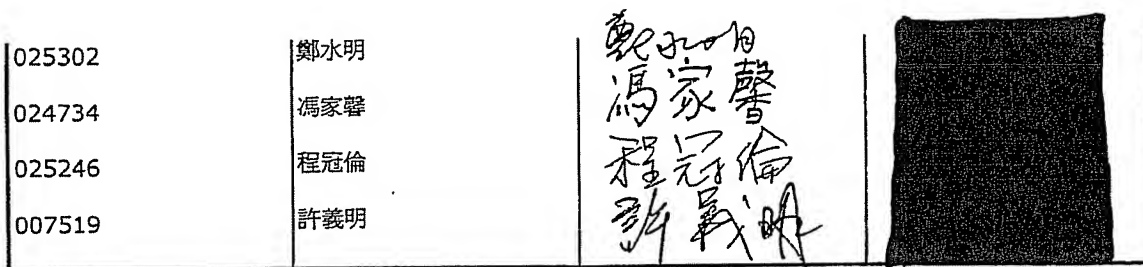 025302 鄭水明 鄭水明
024734 馮家馨 馮家馨
025246 程冠倫 程冠倫
007519 許義明 許義明